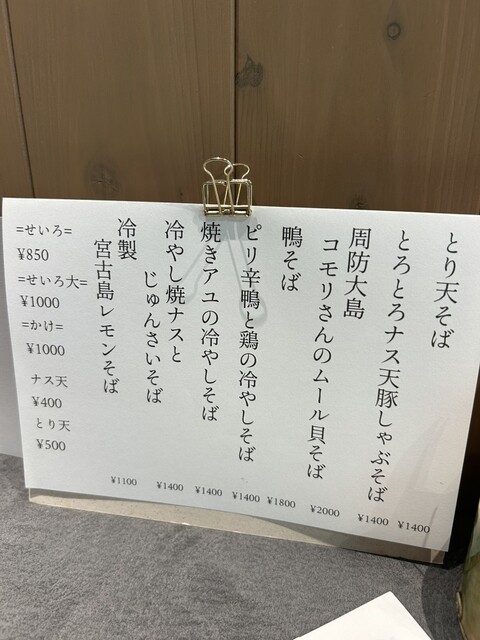 とり天そば
¥1400
とろとろナス天豚しゃぶそば
¥1400
周防大島
コモリさんのムール貝そば
¥2000
鴨そば
¥1800
ピリ辛鴨と鶏の冷やしそば
¥1400
焼きアユの冷やしそば
¥1400
冷やし焼ナスと
じゅんさいそば
¥1400
冷製
宮古島レモンそば
¥1100
=せいろ=
¥850
=せいろ大=
¥1000
=かけ=
¥1000
ナス天
¥400
とり天
¥500